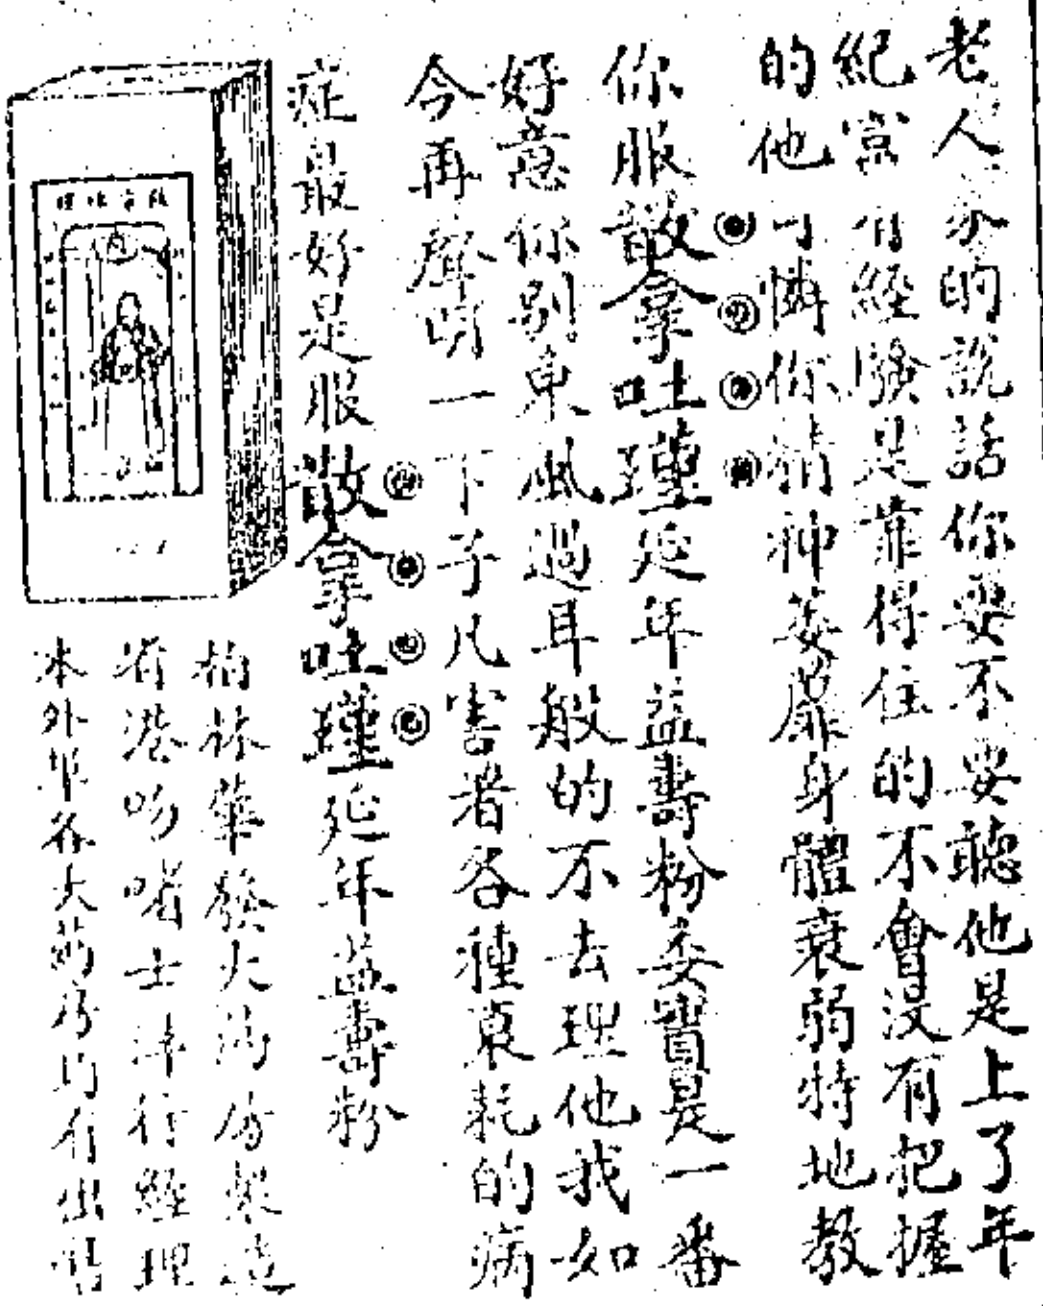 老人家的說話你要不要聽他是上了年
紀當有經驗是靠得住的不會没有把握
的他可憐你精神萎靡身體衰弱特地教
你服散拿吐瑾延年益壽粉委實是一番
好意你别東風過耳般的不去理他我如
今再聲明一下子凡害着各種衰耗的病
症最好是服散拿吐瑾延年益壽粉
柏林華發大药房製造
香港吻喏士洋行經理
本外埠各大药房均有出售